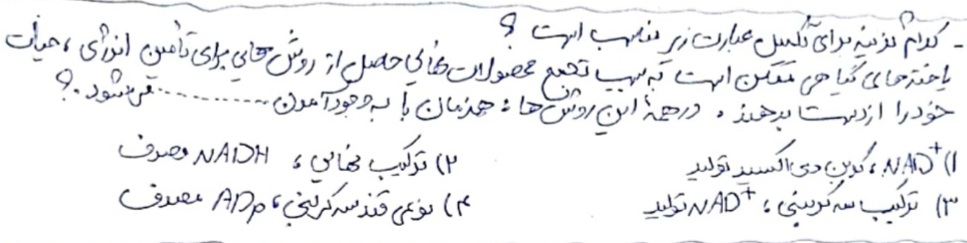 - کدام گزینه برای تکمیل عبارت زیر مناسب است ؟
یاخته‌های گیاهی ممکن است به سبب تجمع محصولات نهایی حاصل از روش‌هایی برای تأمین انرژی ، حیات
خود را از دست بدهند . در همهٔ این روش‌ها ، همزمان با به وجود آمدن ............ می‌شود . ؟
۱) NAD+ ، کربن دی اکسید تولید ۲) ترکیب نهایی ، NADH مصرف
۳) ترکیب سه کربنی ، NAD+ تولید ۴) نوعی قند سه کربنی ، ADP مصرف